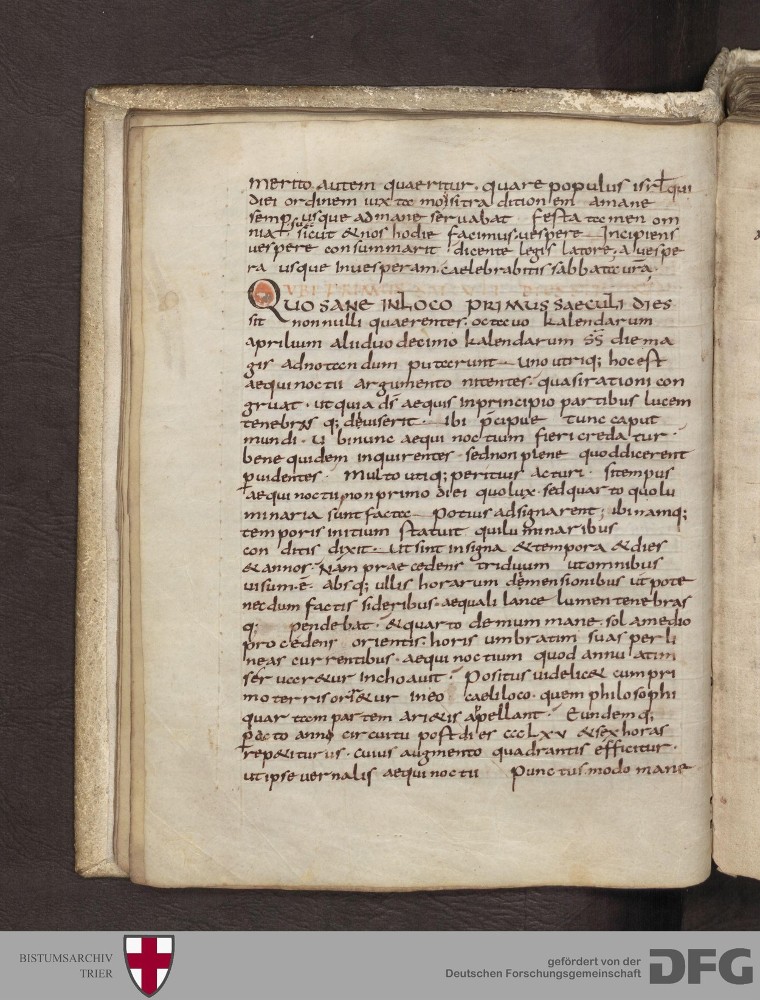 merito autem quaeritur. quare populus isrl qui
diei ordinem iuxta moisi tra ditionem amane
semp usque admane servabat festa tamen om
nia. sua sicut & nos hodie facimus. vespere Incipiens
vespere consummarit dicente legis latore. a vespe
ra usque Invesperam. caelebrabitis sabbata vra.
QUO SANE IN LOCO PRIMUS SAECULI DIES
sit nonnulli quaerentes. octavo kalendarum
aprilium alii duo decimo kalendarum die ma
gis adnotandum putarunt uno utriq; hoc est
aequinoctii argumento nitentes. quasi rationi con
gruat. ut quia ds aequis in principio partibus lucem
tenebras q; diviserit. ibi pcipue tunc caput
mundi. ubi nunc aequi noctium fieri creda tur.
bene quidem inquirentes. sed non plene quod dicerent
pvidentes. Multo utiq; peritius acturi. si tempus
aequi noctii, non primo diei quo lux. sed quarto quo lu
minaria sunt facta potius adsignarent; ibi namq;
temporis initium statuit qui luminaribus
con ditis dixit. Ut sint in signa & tempora & dies
& annos. Nam prae cedens triduum ut omnibus
visum. e. absq; ullis horarum demensionibus ut pote
necdum factis sideribus. aequali lance lumen tenebras
q; pendebat. & quarto demum mane. sol a medio
procedens orientis. horis umbratim suas per li
neas currentibus. aequi noctium quod annu atim
servaretur inchoavit. Positus videlicet cum pri
mo terris oritur in eo caeli loco. quem philosophi
quartam partem arietis appellant. Eundemq;
pacto anno circuitu post dies ccclxv & sex horas
repetiturus. cuius augmento quadrantis efficitur.
ut ipse vernalis aequi noctii punctus. modo mane
BISTUMSARCHIV
TRIER
gefördert von der
Deutschen Forschungsgemeinschaft
DFG